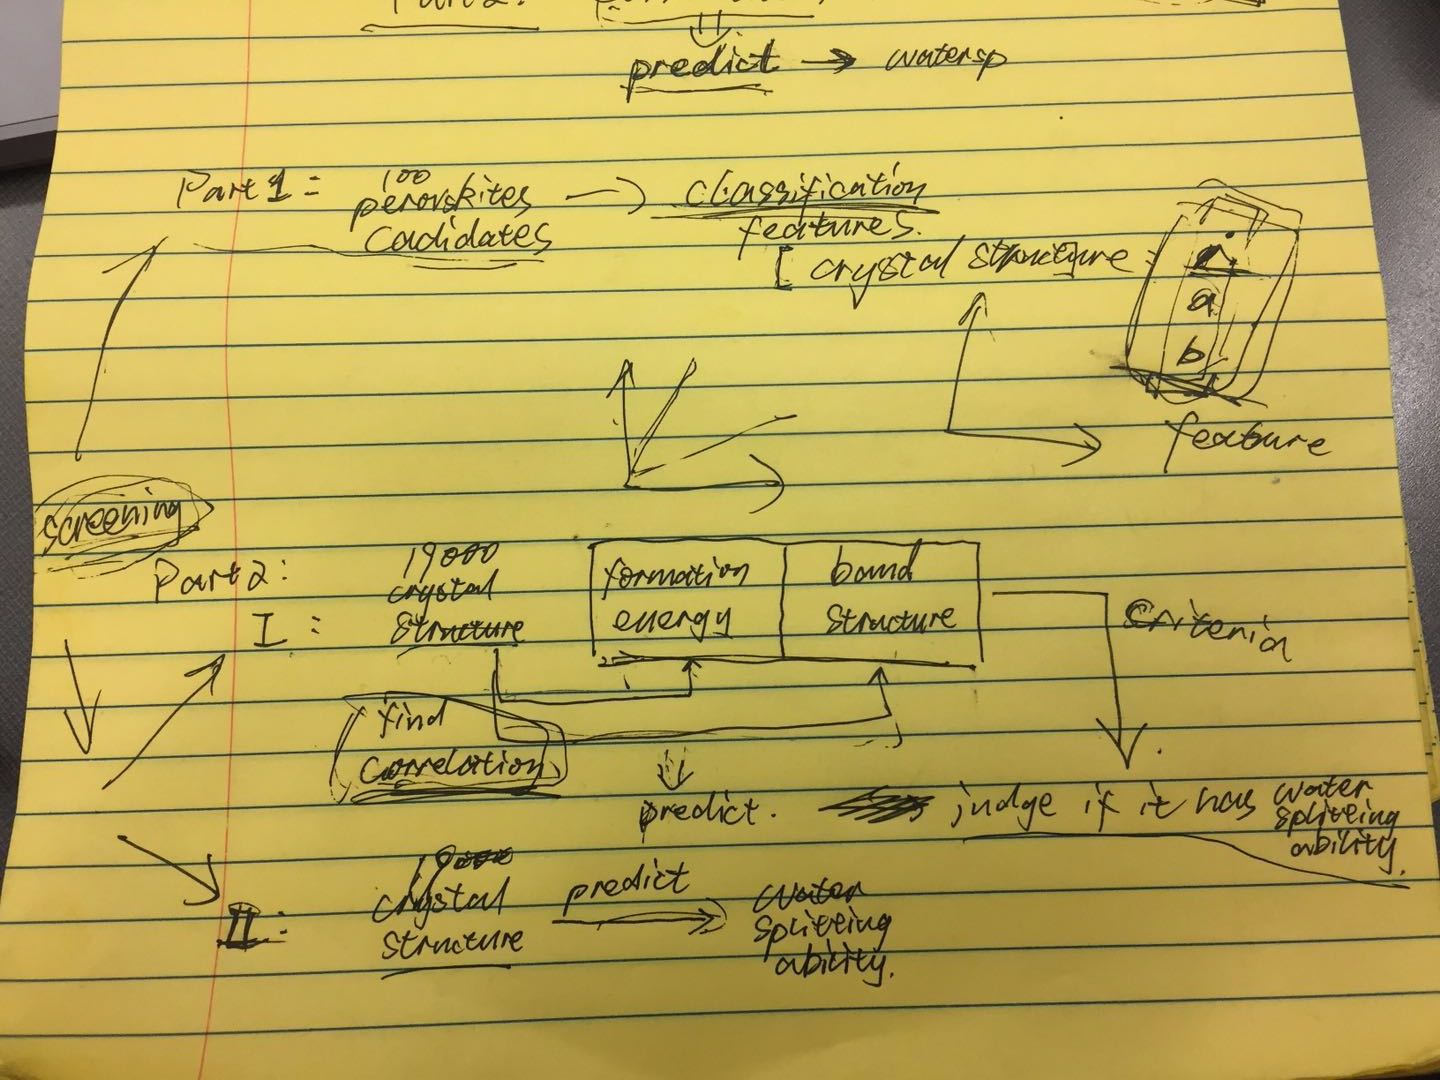 Part 2:
predict → watersp
Part 1: 100 perovskites cadidates → classification features.
[ crystal structure :
a
b
feature
screening
Part 2:
I : 19000 crystal structure
formation energy
band structure
criteria
find correlation
predict.
judge if it has water splitting ability.
II : 19000 crystal structure predict → water splitting ability.